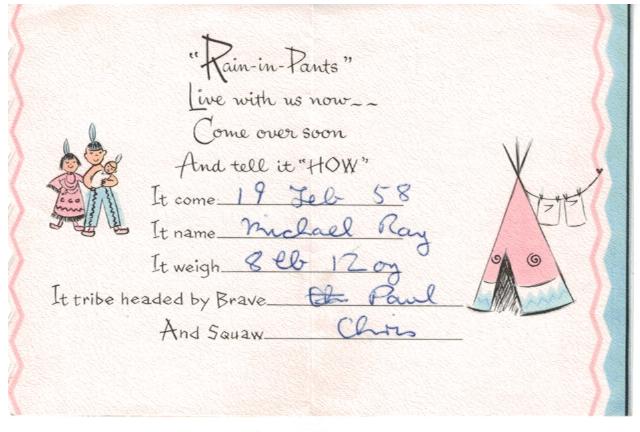 "Rain-in-Pants"
Live with us now~~
Come over soon
And tell it "HOW"
It come 19 Feb 58
It name Michael Ray
It weigh 8 lb 12 oz
It tribe headed by Brave Paul
And Squaw Chris